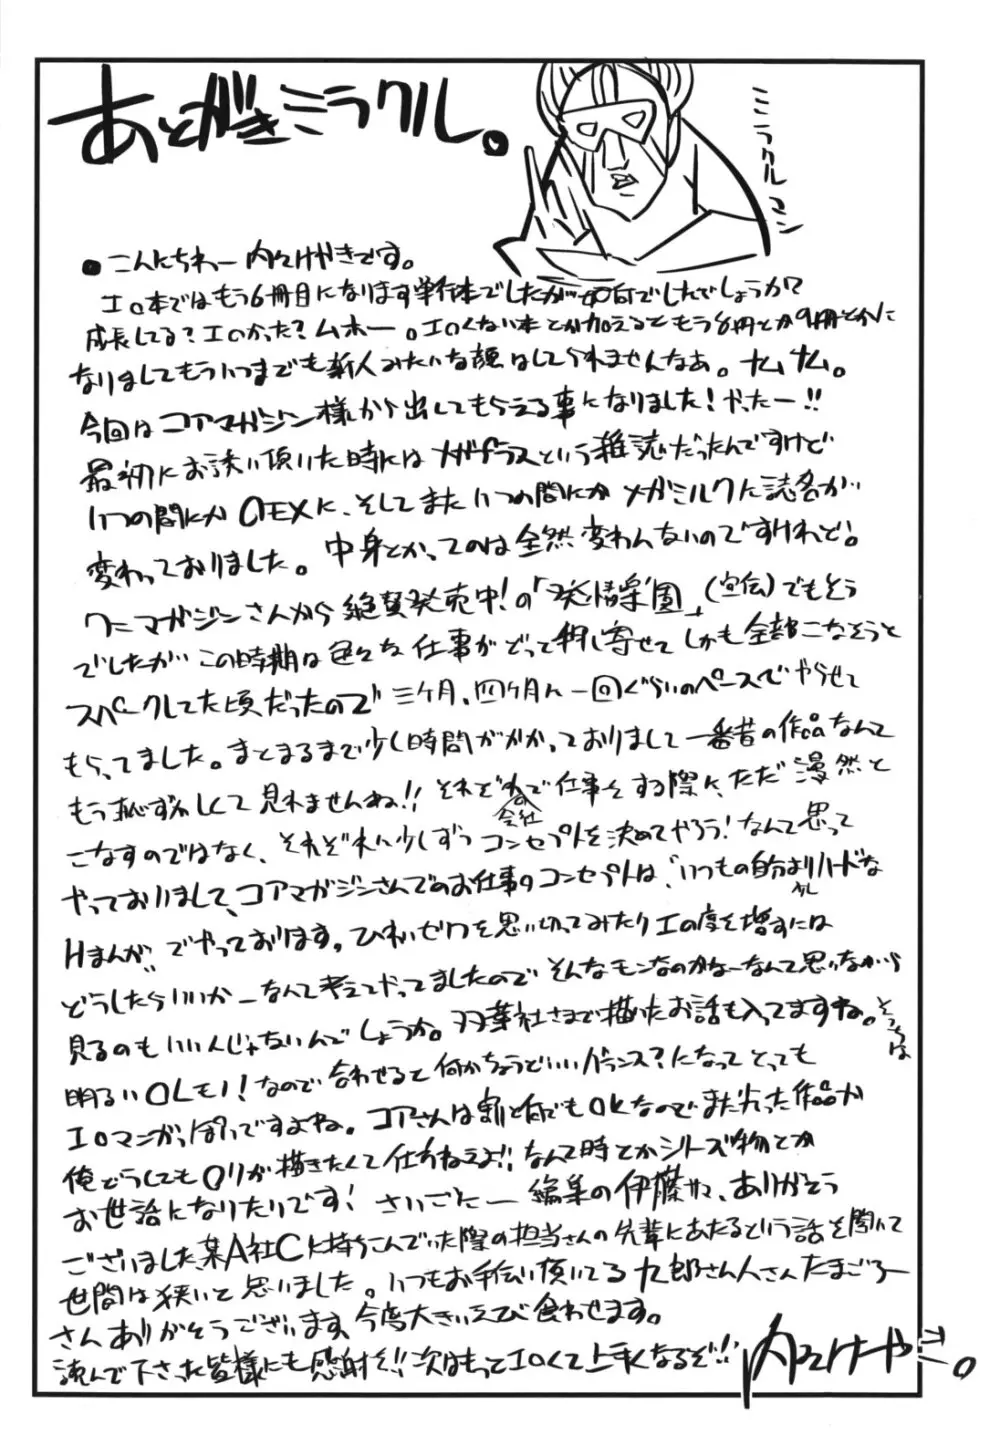 あとがきミラクル。
ミラクルマン
●こんにちわー 内々けやきです。
エロ本ではもう6冊目になります単行本でしたが如何でしたでしょうか?
成長してる?エロかった?ムホー。エロくない本とか加えるともう8冊とか9冊とかに
なりましてもういつまでも新人みたいな顔はしてられませんなあ。ナムナム。
今回はコアマガジン様から出してもらえる事になりました!やったー!!
最初にお誘い頂いた時にはメガプラスという雑誌だったんですけど
いつの間にかOEXに、そしてまたいつの間にかメガミルクに誌名が
変わっておりました。中身とかってのは全然変わんないのですけれど!
ワニマガジンさんから絶賛発売中!の「発情楽園」(宣伝)でもそう
でしたがこの時期は色々な仕事がどっと押し寄せてしかも全部こなそうと
スパークしてた頃だったので三ヶ月、四ヶ月に一回ぐらいのペースでやらせて
もらってました。まとまるまで少し時間がかかっておりまして一番昔の作品なんて
もう恥ずかしくて見れませんね!!それぞれの会社で仕事をする際に、ただ漫然と
こなすのではなく、それぞれに少しずつコンセプトを決めてやろう!なんて思って
やっておりまして、コアマガジンさんでのお仕事のコンセプトは、“いつもの自分より少しハードな
Hまんが”でやっております。ひわいゼリフを思い切ってみたりエロ度を増すには
どうしたらいいかーなんて考えてやってましたのでそんなモンなのかなーなんて思いながら
見るのもいいんじゃないんでしょうか。双葉社さまで描いたお話も入ってますね。そっちは
明るいOLモノ!なので合わせると何かちょうどいいバランス?になってとっても
エロマンガっぽいですよね。コアさんは割と何でもOKなのでまた尖った作品か
俺どうしてもロリが描きたくて仕方ねえよ!!なんて時とかシリーズ物とか
お世話になりたいです!さいごにー編集の伊藤サマ、ありがとう
ございました某A社Cに持ちこんでいた際の担当さんの先輩にあたるという話を聞いて
世間は狭いと思いました。いつもお手伝い頂いてる九郎さん人さんたまごろー
さんありがとうございます、今度大きいエビ食わせます。
読んで下さった皆様にも感謝を!!次はもっとエロくて上手くなるぞ!!
内々けやき。